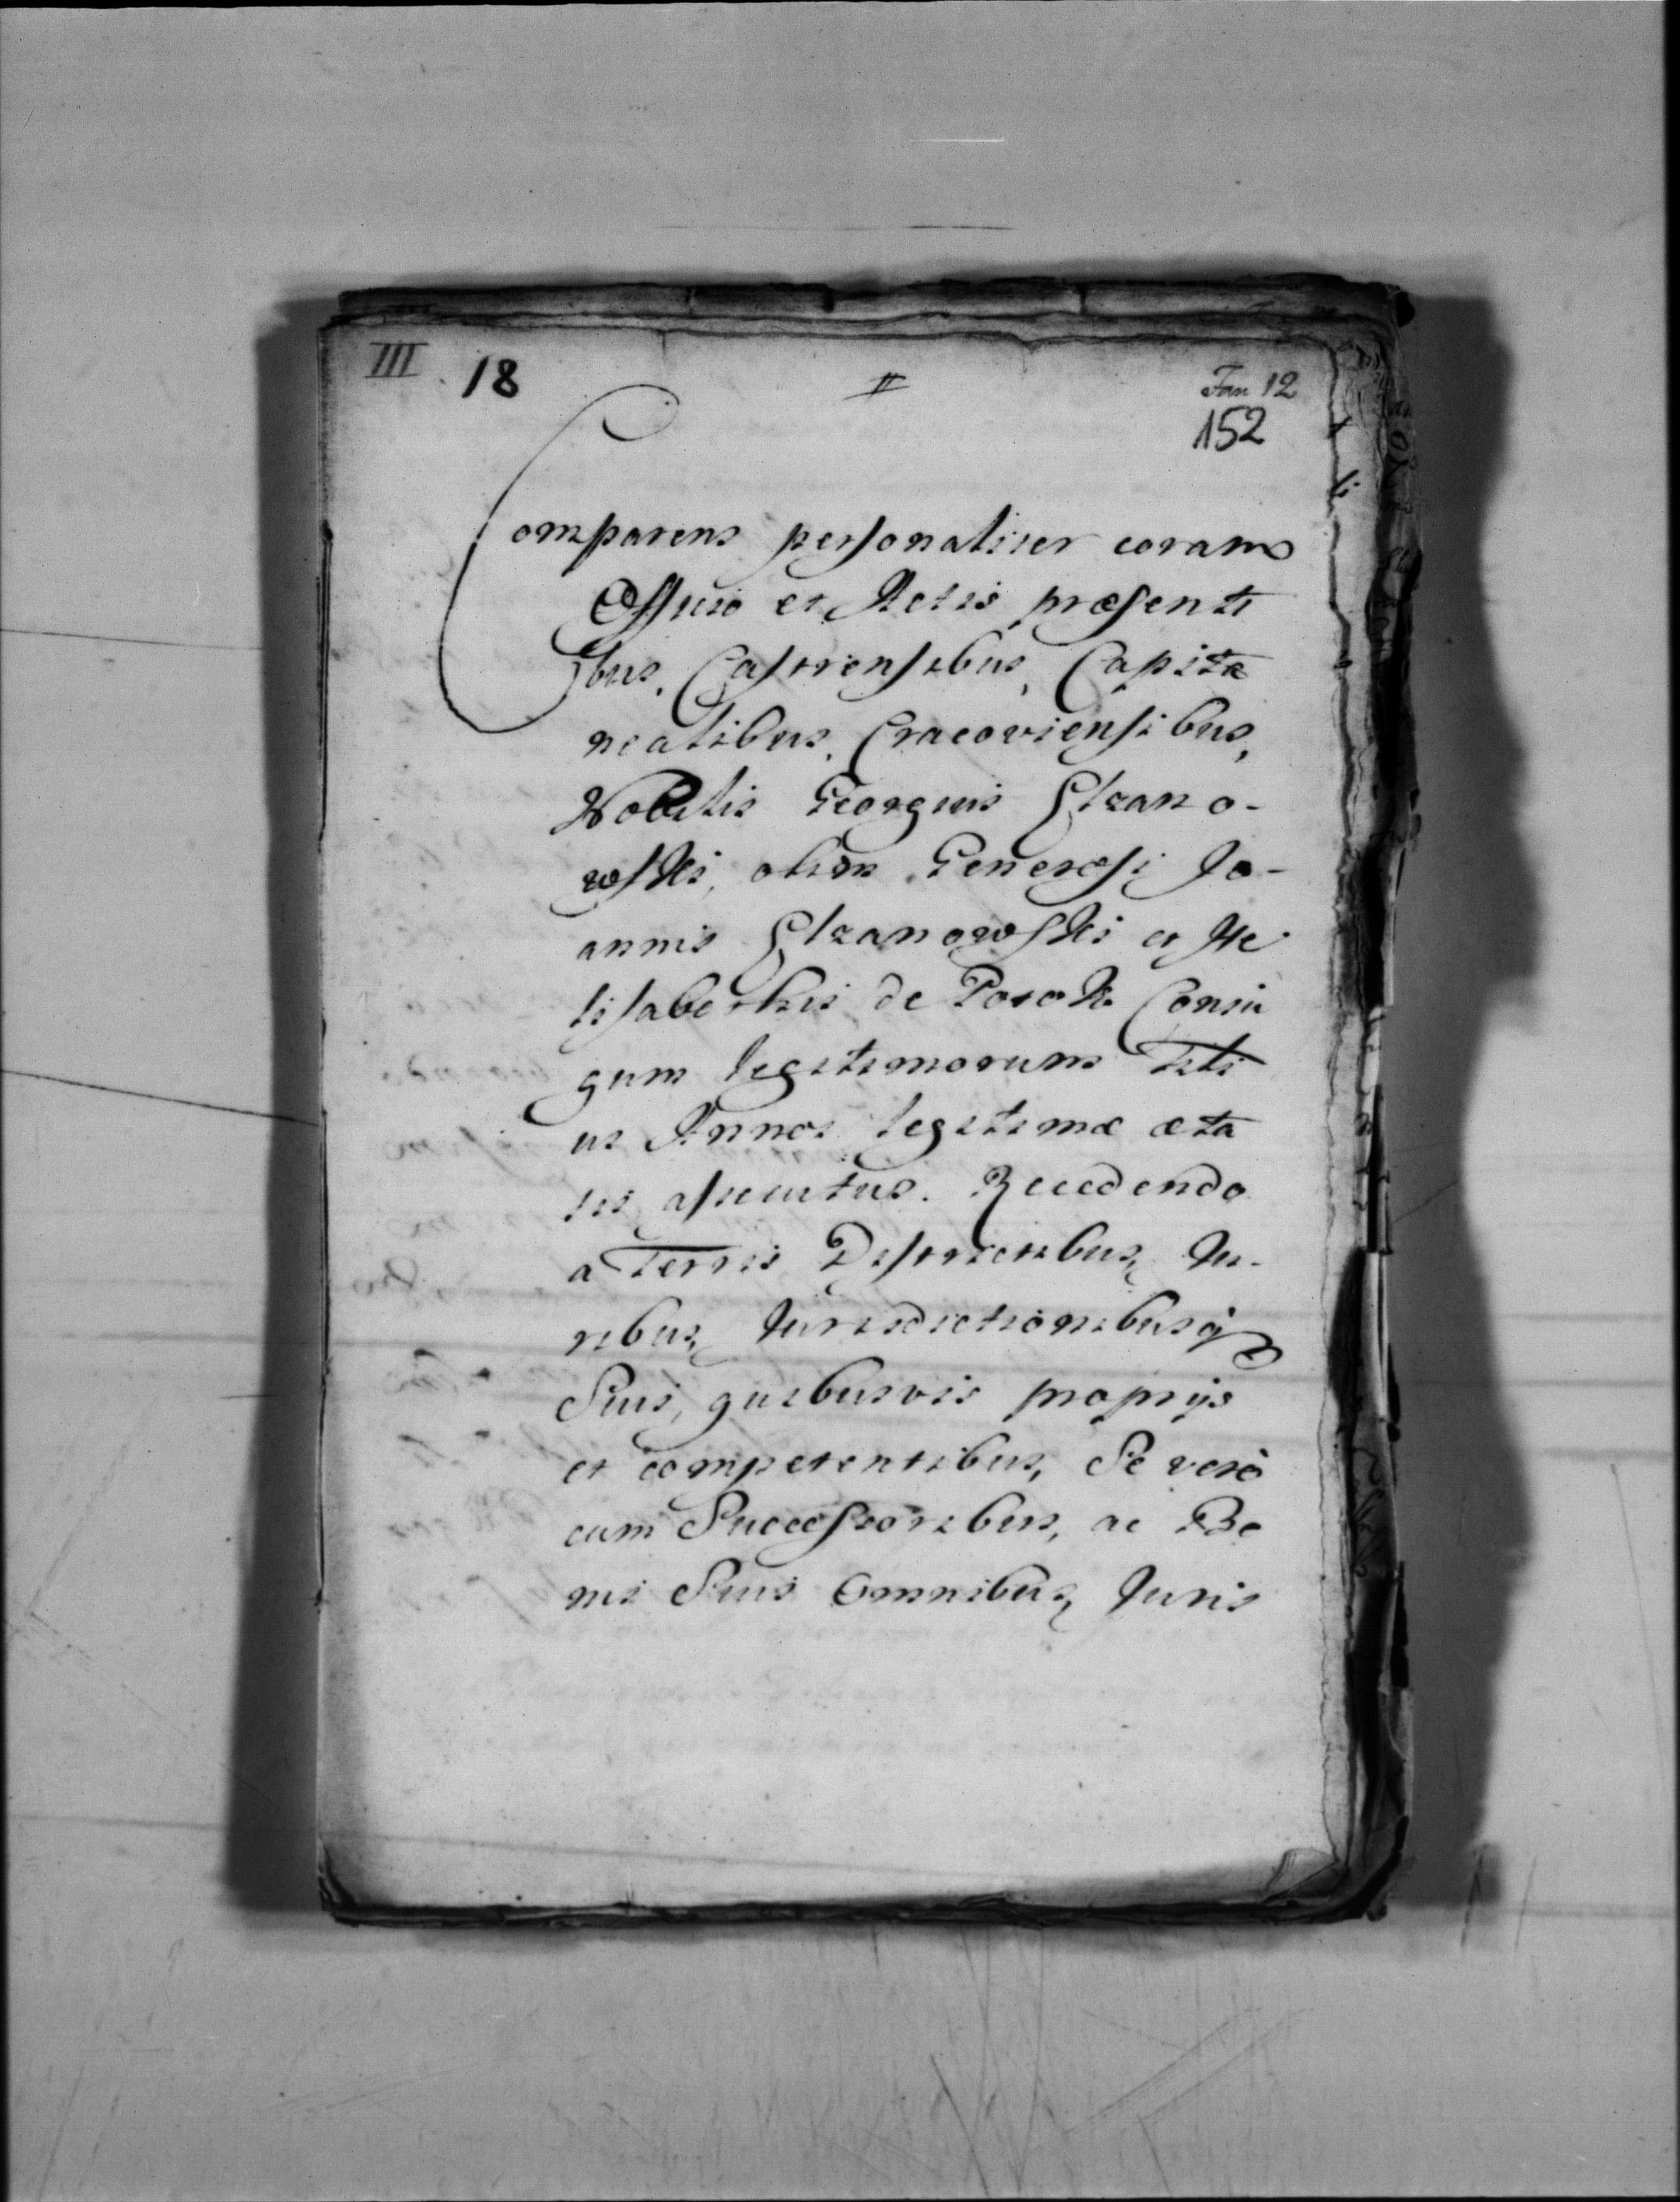 III 18 # Fan 12
152
Comparens personaliter coram
Officio et Actis præsenti
bus, Castrensibus, Capita
nealibus, Cracoviensibus,
Nobilis Georgius
wski, olim Generosi Jo-
annis et He
lisabethis de Potok Coniu
gum legitimorum Fili
us Annos legitimæ æta
tis assecutus. Recedendo
a Terris Districtibus, Ju-
ribus, Jurisdictionibusq
Suis, quibusvis proprijs
et competentibus, Se verò
cum Successoribus, ac Bo
nis Suis Omnibus, Juris